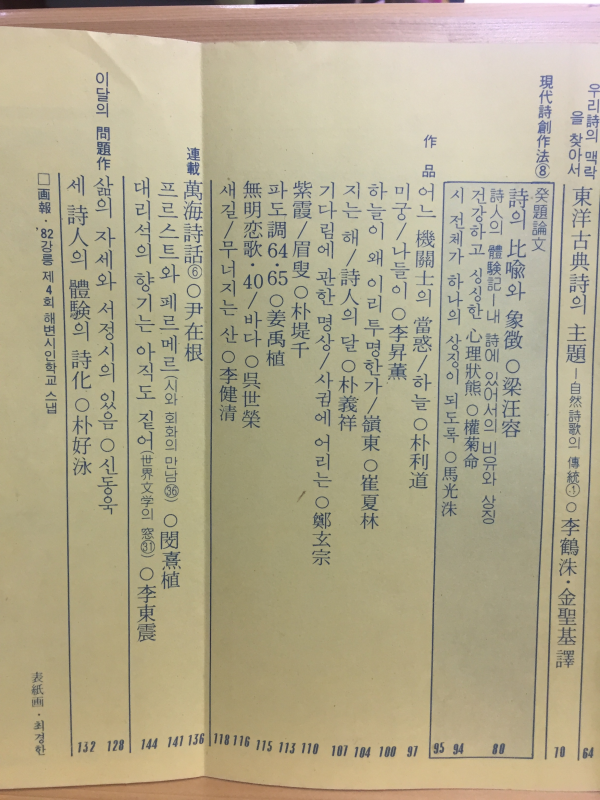 우리 詩의 맥락을 찾아서 東洋古典詩의 主題―自然詩歌의 傳統① ○ 李鶴洙·金聖基 譯 64
10
現代詩創作法⑧
発題論文
詩의 比喩와 象徴 ○ 梁汪容 80
詩人의 體驗記―내 詩에 있어서의 비유와 상징
건강하고 싱싱한 心理狀態 ○ 權菊命 94
시 전체가 하나의 상징이 되도록 ○ 馬光洙 95
作品
어느 機關士의 當惑/하늘 ○ 朴利道 97
미궁/나들이 ○ 李昇薰 100
하늘이 왜 이리 투명한가/嶺東 ○ 崔夏林 104
지는 해/詩人의 달 ○ 朴義祥 107
기다림에 관한 명상/사귐에 어리는 ○ 鄭玄宗 110
紫霞/眉叟 ○ 朴堤千 113
파도調 64·65 ○ 姜禹植 115
無明恋歌·40/바다 ○ 呉世榮 116
새길/무너지는 산 ○ 李健清 118
連載
萬海詩話⑥ ○ 尹在根 136
프르스트와 페르메르(시와 회화의 만남㊱) ○ 閔熹植 141
대리석의 향기는 아직도 짙어(世界文学의 窓㉛) ○ 李東震 144
이달의 問題作
삶의 자세와 서정시의 있음 ○ 신동욱 128
세 詩人의 體驗의 詩化 ○ 朴好泳 132
□ 画報·'82 강릉 제4회 해변시인학교 스냅
表紙画·최경한